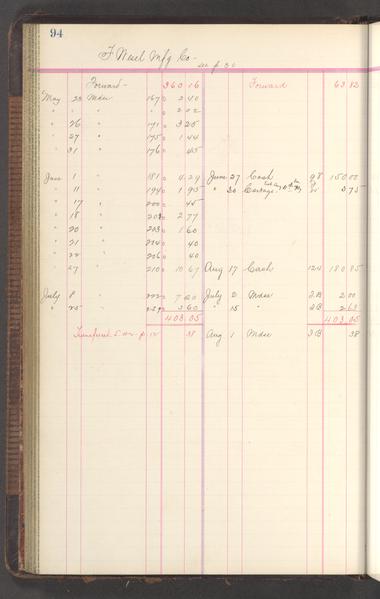 94
Mfg Co
see p 30
Forward 360 16 Forward 63.82
May 23 Mdse 167 2 40
" " " 2 02
" 26 " 171 3 25
" 27 " 175 1 44
" 31 " 176 45
June 1 " 181 4 29 June 27 Cash 98 150.00
" 11 " 194 1 95 " 30 Cartage 3.75
" 17 " 200 45
" 18 " 2 77
" 20 " 203 1 60
" 21 " 204 40
" 22 " 206 40
" 27 " 210 10 67 Aug 17 Cash 124 180.85
July 8 " 222 7 20 July 2 Mdse J.B 2.00
" 25 " 3 60 " 15 " J.B 2.63
403.05 403.05
38 Aug 1 Mdse J.B 38